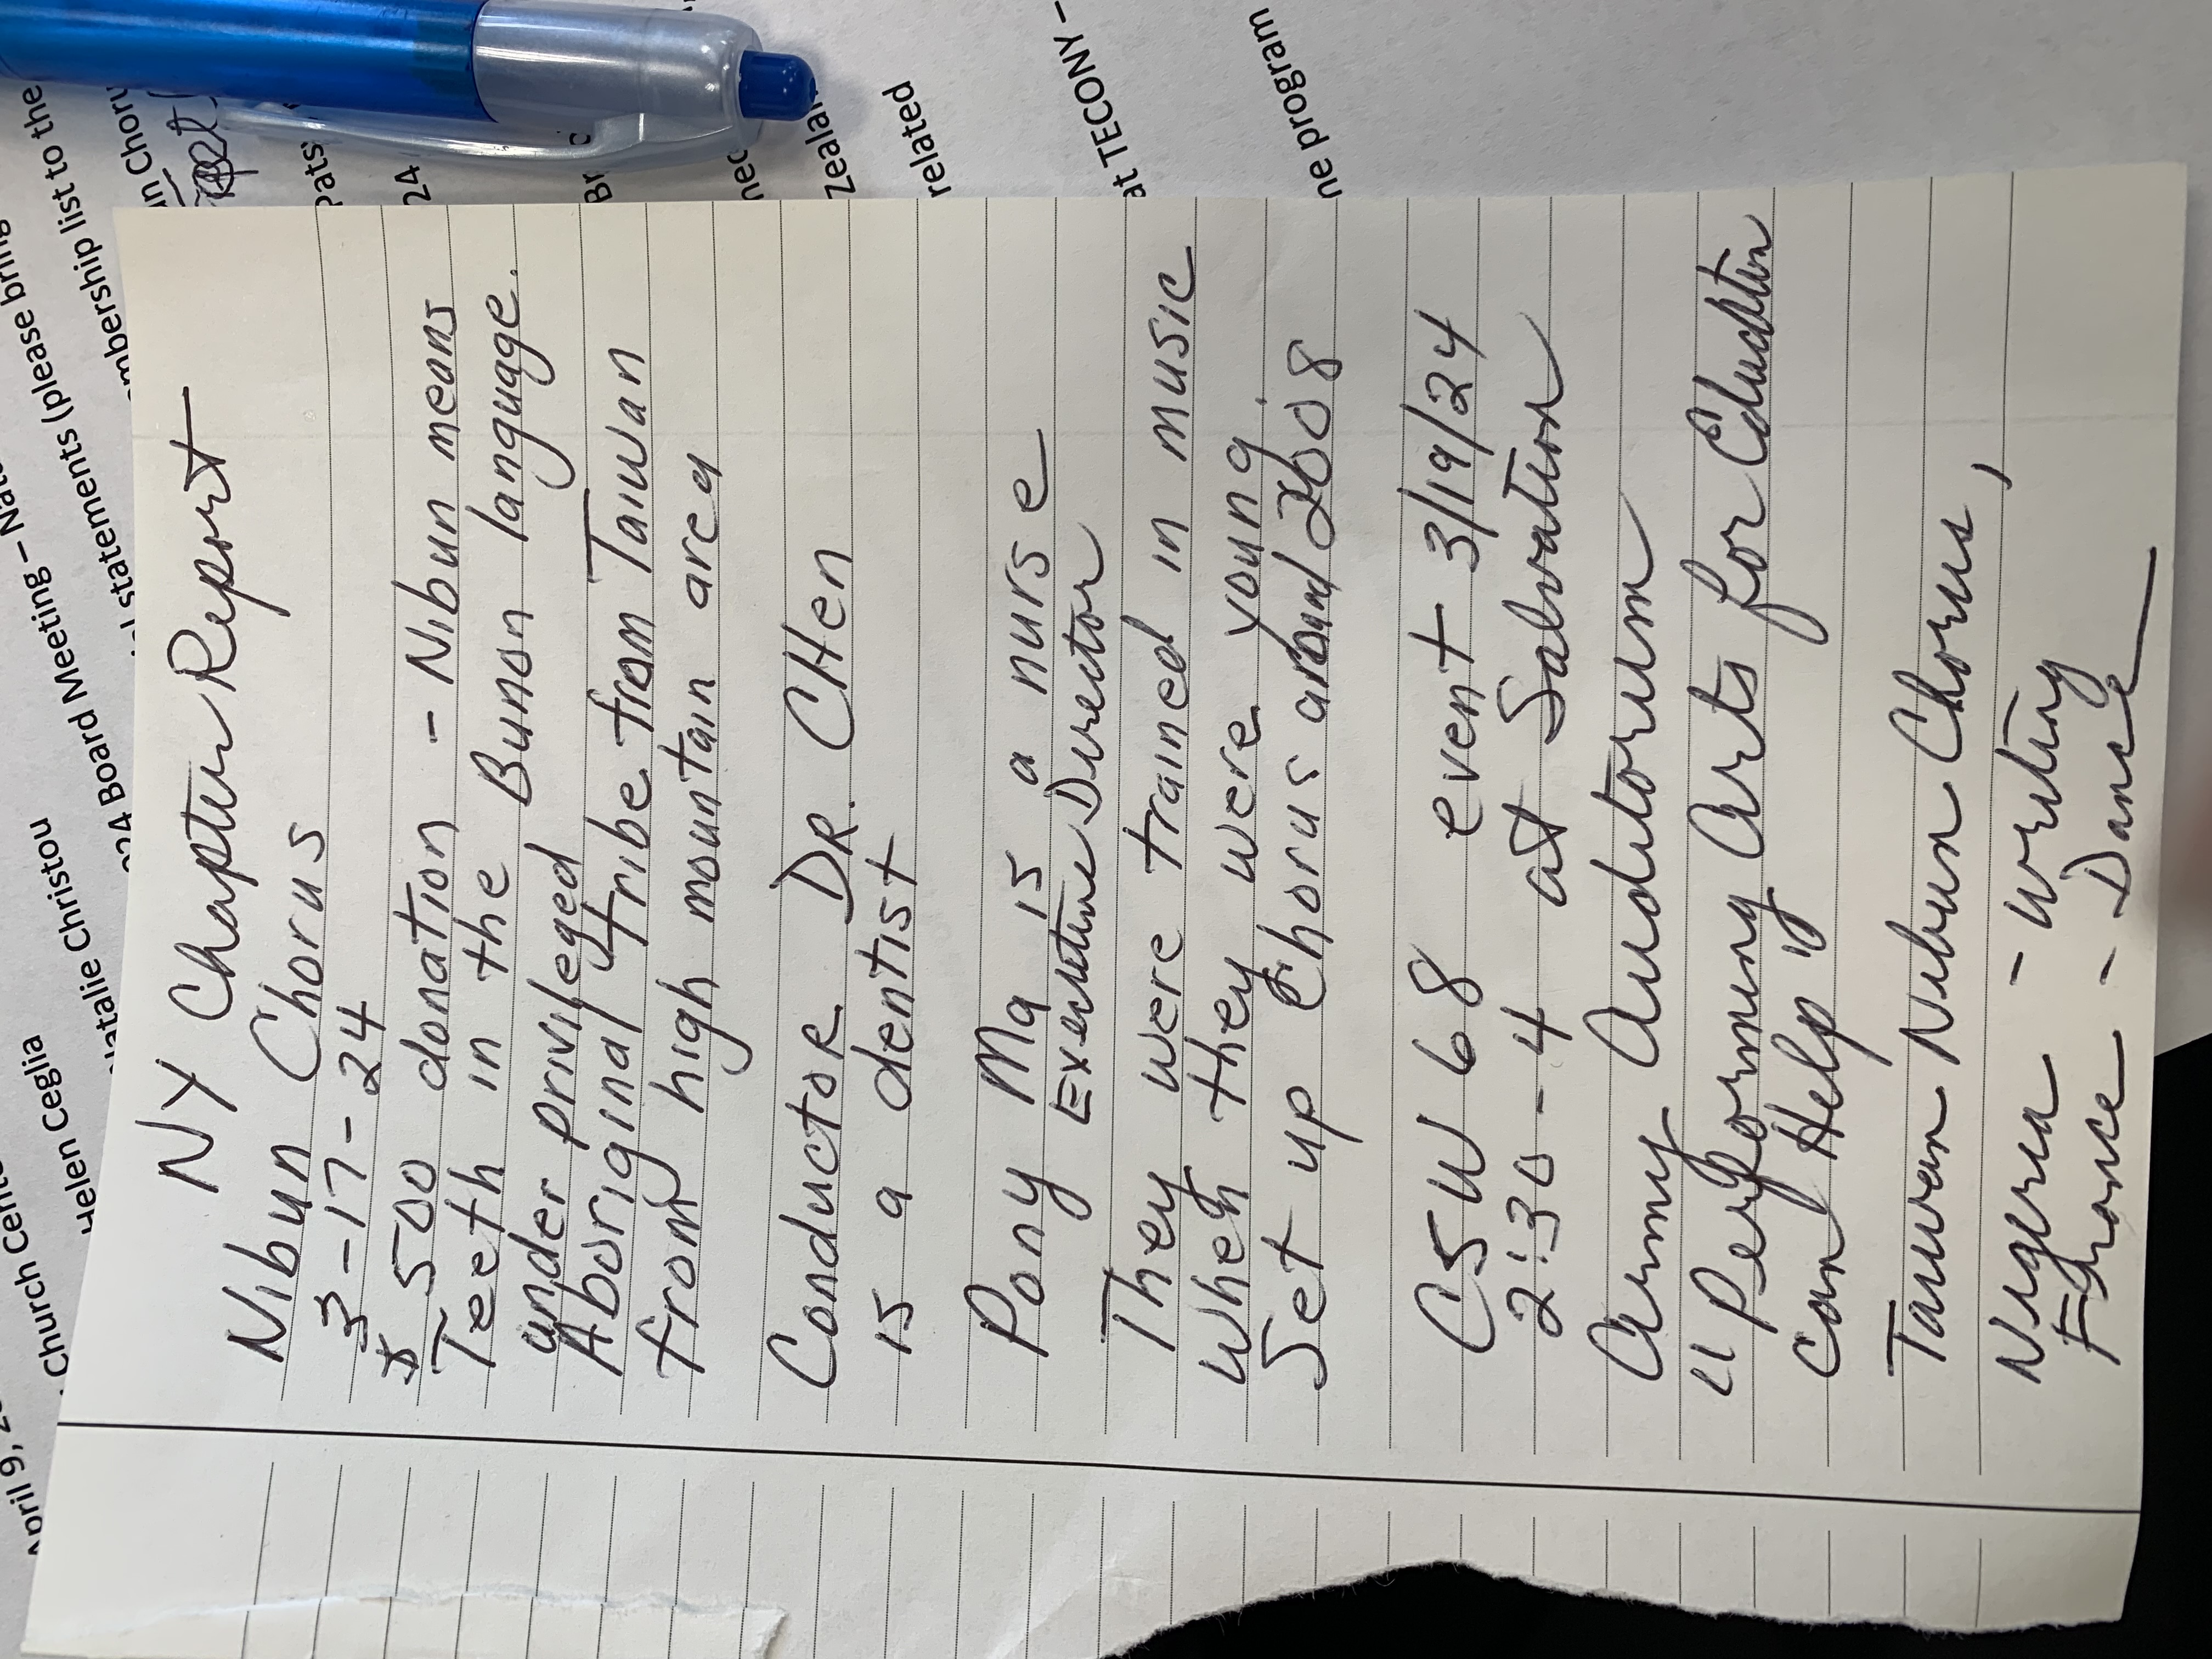 April 9,
Church
Helen Ceglia
Natalie Christou
024 Board Meeting –
statements (please bring
membership list to the
NY Chapter Report
Nibun Chorus
3-17-24
$ 500 donation - Nibun means
Teeth in the Bunon language.
under privileged
Aboriginal tribe from Taiwan
from high mountain area
Conductor DR. CHen
is a dentist
Pony Ma is a nurse
Executive Director
They were trained in music
When they were young.
Set up Chorus around 2008
CSW 68 event 3/19/24
2:30-4 at Salvation
Army Auditorium
"Performing Arts for Education
can Help"
Taiwan Nibun Chorus,
Nigeria - writing
France - Dance
24
related
at TECONY –
program